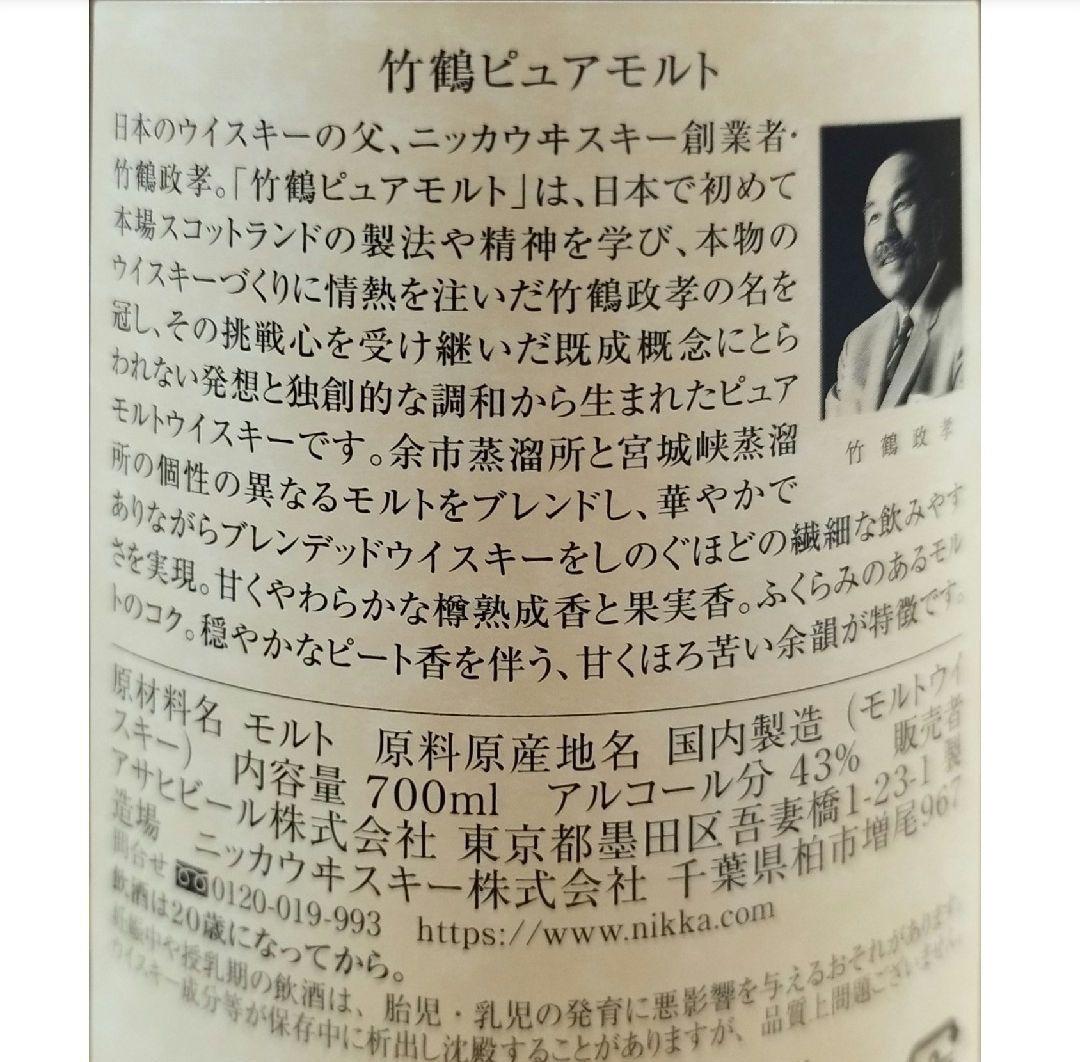 竹鶴ピュアモルト
日本のウイスキーの父、ニッカウヰスキー創業者・
竹鶴政孝。「竹鶴ピュアモルト」は、日本で初めて
本場スコットランドの製法や精神を学び、本物の
ウイスキーづくりに情熱を注いだ竹鶴政孝の名を
冠し、その挑戦心を受け継いだ既成概念にとら
われない発想と独創的な調和から生まれたピュア
モルトウイスキーです。余市蒸溜所と宮城峡蒸溜
所の個性の異なるモルトをブレンドし、華やかで
ありながらブレンデッドウイスキーをしのぐほどの繊細な飲みやす
さを実現。甘くやわらかな樽熟成香と果実香。ふくらみのあるモル
トのコク。穏やかなピート香を伴う、甘くほろ苦い余韻が特徴です。
竹鶴政孝
原材料名 モルト 原料原産地名 国内製造（モルトウイ
スキー） 内容量 700ml アルコール分 43% 販売者
アサヒビール株式会社 東京都墨田区吾妻橋1-23-1 製
造場 ニッカウヰスキー株式会社 千葉県柏市増尾967
問合せ 0120-019-993 https://www.nikka.com
飲酒は20歳になってから。
妊娠中や授乳期の飲酒は、胎児・乳児の発育に悪影響を与えるおそれがあります。
ウイスキー成分等が保存中に析出し沈殿することがありますが、品質上問題ございません。